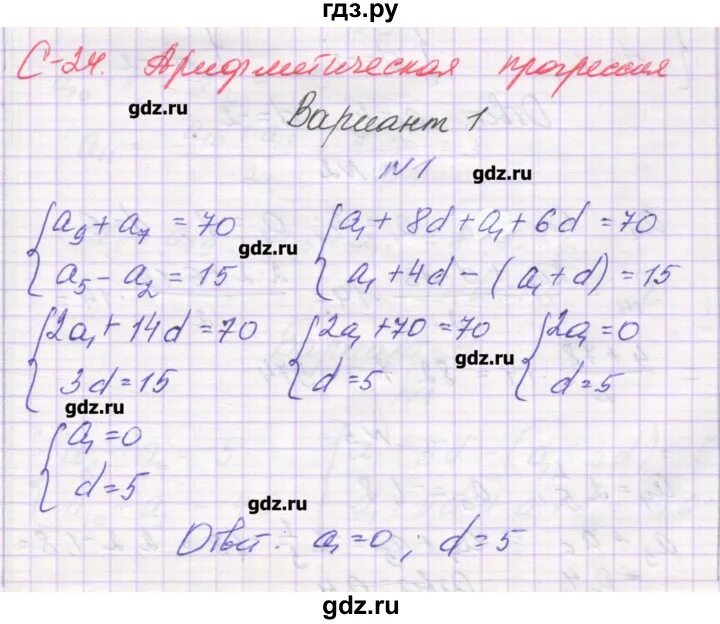 гдз.ру
С-24. Арифметическая прогрессия
gdz.ru
Вариант 1
N1
gdz.ru
{ a₉ + a₇ = 70 { a₁ + 8d + a₁ + 6d = 70
gdz.ru
a₅ - a₂ = 15 a₁ + 4d - (a₁ + d) = 15
{ 2a₁ + 14d = 70 { 2a₁ + 70 = 70 { 2a₁ = 0
gdz.ru
3d = 15 d = 5 d = 5
gdz.ru
{ a₁ = 0
d = 5
gdz.ru
Ответ: a₁ = 0; d = 5
gdz.ru